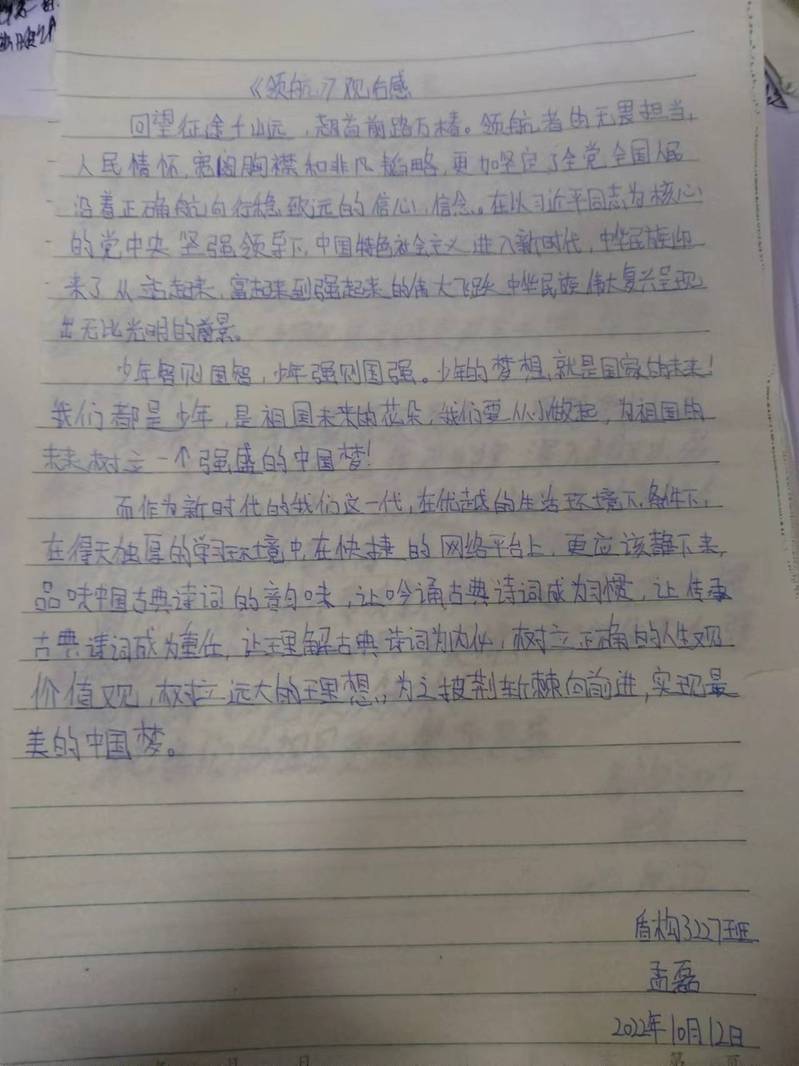 《领航》观后感
回望征途千山远，翘首前路万木春。领航者的无畏担当，
人民情怀，宽阔胸襟和非凡韬略，更加坚定了全党全国人民
沿着正确航向行稳致远的信心、信念。在以习近平同志为核心
的党中央坚强领导下，中国特色社会主义进入新时代，中华民族迎
来了从站起来，富起来到强起来的伟大飞跃，中华民族伟大复兴呈现
出无比光明的前景。
少年智则国智，少年强则国强。少年的梦想，就是国家的未来！
我们都是少年，是祖国未来的花朵，我们要从小做起，为祖国的
未来树立一个强盛的中国梦！
而作为新时代的我们这一代，在优越的生活环境下、条件下，
在得天独厚的学习环境中，在快捷的网络平台上，更应该静下来，
品味中国古典诗词的韵味，让吟诵古典诗词成为习惯，让传承
古典诗词成为责任，让理解古典诗词为内化，树立正确的人生观
价值观，树立远大的理想，为之披荆斩棘向前进，实现最
美的中国梦。
盾构3227班
孟磊
2022年10月12日